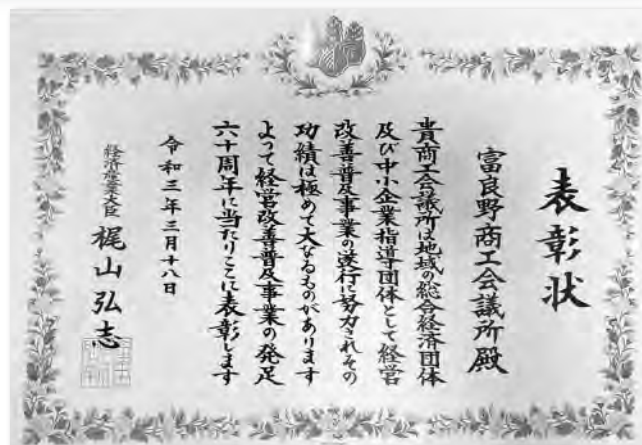 表彰状
富良野商工会議所殿
貴商工会議所は地域の総合経済団体
及び中小企業指導団体として経営
改善普及事業の遂行に努力されその
功績は極めて大なるものがあります
よって経営改善普及事業の発足
六十周年に当たりここに表彰します
令和三年三月十八日
経済産業大臣 梶山弘志